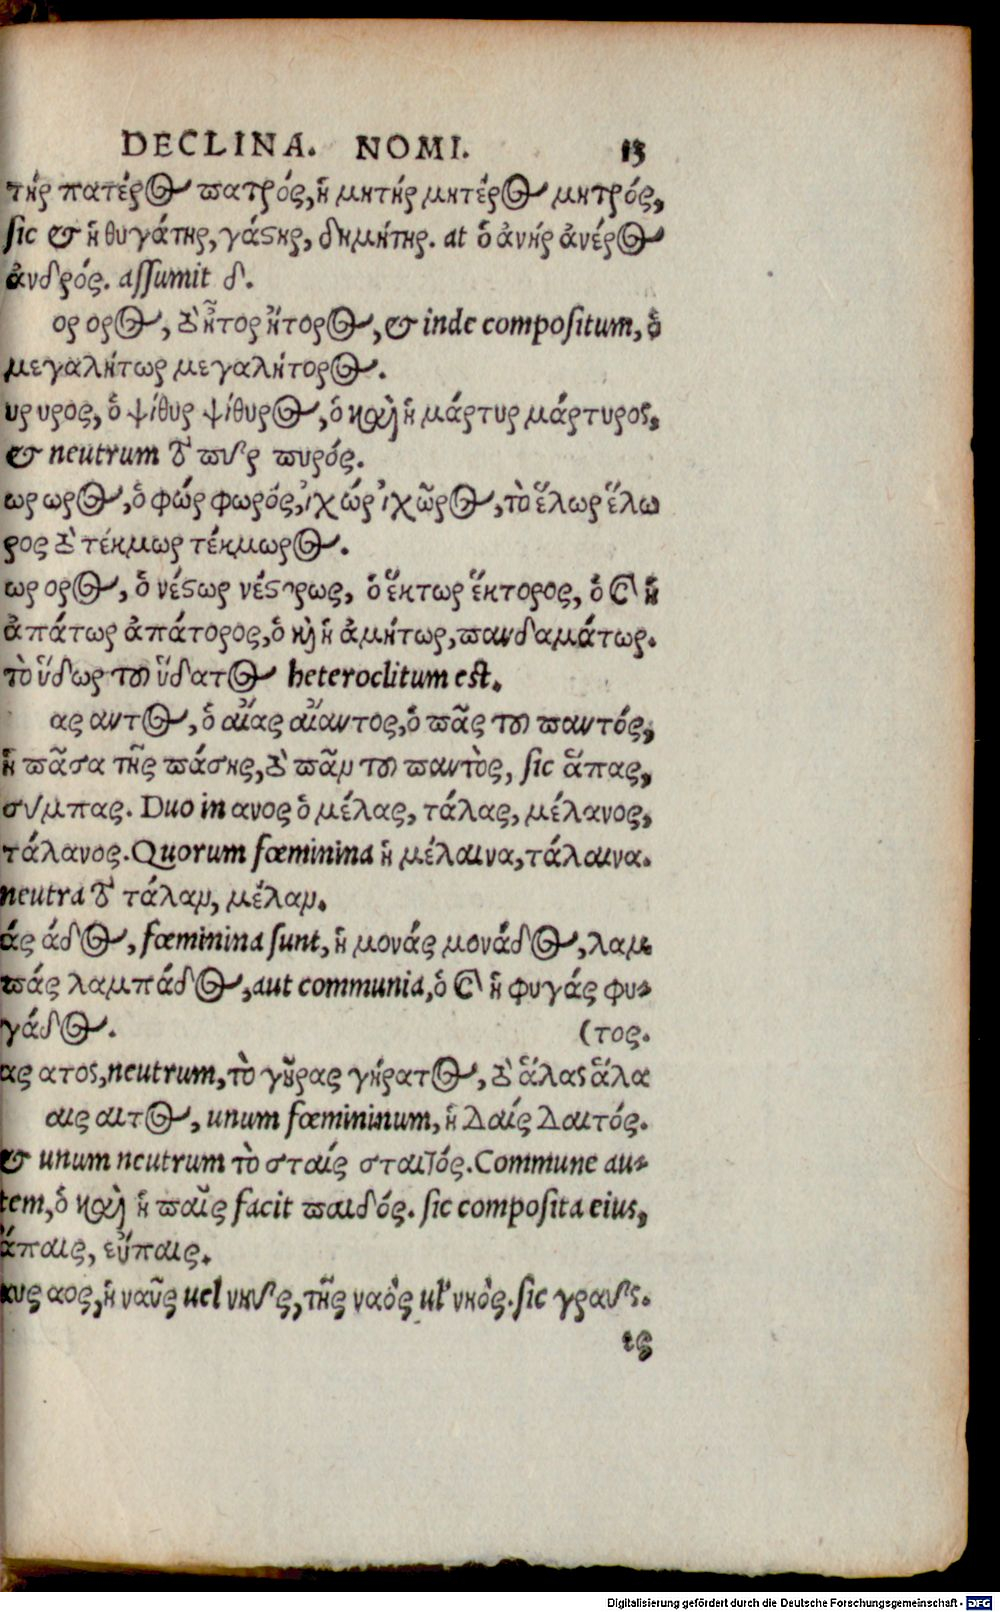 DECLINA. NOMI. 13
τήρ πατέρος πατρός, ἡ μητήρ μητέρος μητρός,
sic & ἡ θυγάτηρ, γάστηρ, δημήτηρ. at ὁ ἀνήρ ἀνέρος
ἀνδρός. assumit δ.
ορ ορος, τὸ ἦτορ ἤτορος, & inde compositum, ὁ
μεγαλήτωρ μεγαλήτορος.
υρ υρος, ὁ ψίθυρ ψίθυρος, ὁ καὶ ἡ μάρτυρ μάρτυρος,
& neutrum τὸ πυρ πυρός.
ωρ ωρος, ὁ φώρ φωρός, ἰχώρ ἰχῶρος, τὸ ἕλωρ ἕλω
ρος τὸ τέκμωρ τέκμωρος.
ωρ ορος, ὁ νέστωρ νέστορως, ὁ ἕκτωρ ἕκτορος, ὁ καὶ ἡ
ἀπάτωρ ἀπάτορος, ὁ καὶ ἡ ἀμήτωρ, πανδαμάτωρ.
τὸ ὕδωρ του ὕδατος heteroclitum est.
ας αντος, ὁ αἴας αἴαντος, ὁ πᾶς του παντός,
ἡ πᾶσα τῆς πάσης, τὸ πᾶν του παντὸς, sic ἅπας,
σύμπας. Duo in ανος ὁ μέλας, τάλας, μέλανος,
τάλανος. Quorum fœminina ἡ μέλαινα, τάλαινα.
neutra τὸ τάλαν, μέλαν.
άς άδος, fœminina sunt, ἡ μονάς μονάδος, λαμ
πάς λαμπάδος, aut communia, ὁ καὶ ἡ φυγάς φυ-
γάδος. (τος.
ας ατος, neutrum, τὸ γῆρας γήρατος, τὸ ἅλας ἅλα
αις αιτος, unum fœmininum, ἡ Δαίς Δαιτός.
& unum neutrum τὸ σταίς σταιτός. Commune au-
tem, ὁ καὶ ἡ παῖς facit παιδός. sic composita eius,
ἄπαις, εὔπαις.
αυς αος, ἡ ναῦς uel νηυς, τῆς ναὸς ul' νηὸς. sic γραυς.
ις
Digitalisierung gefördert durch die Deutsche Forschungsgemeinschaft - DFG